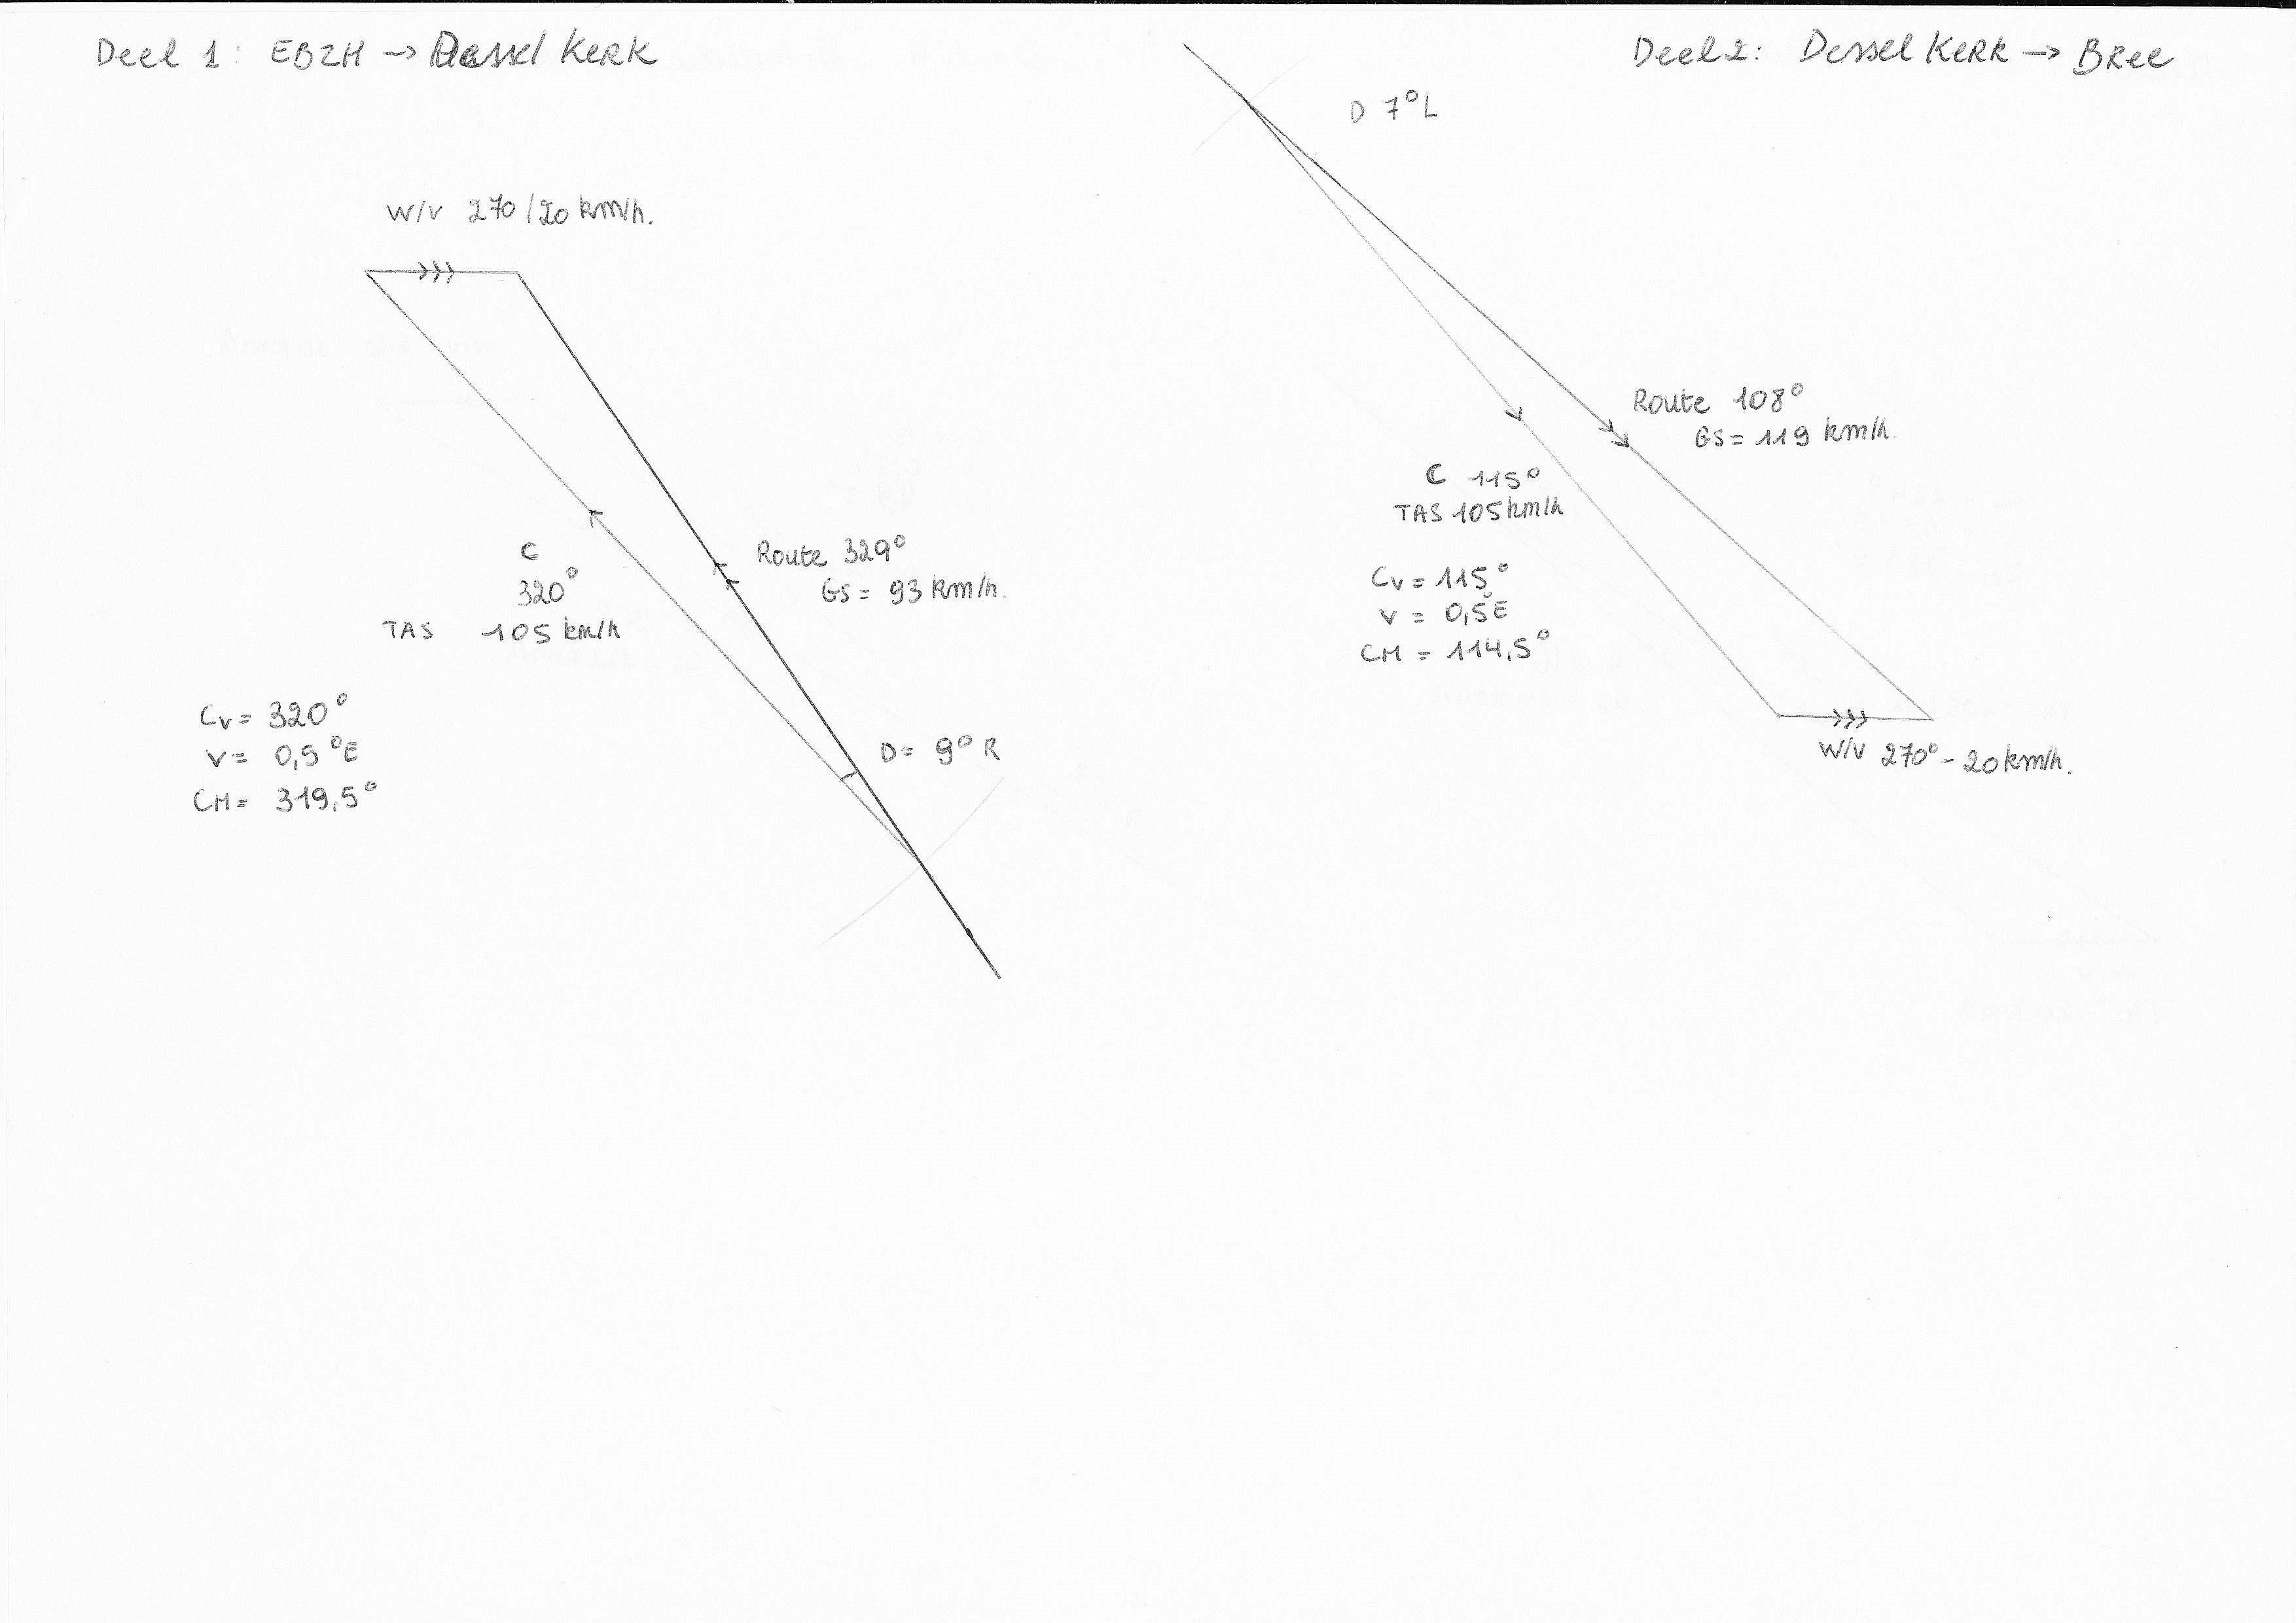 Deel 1: EBZH → Dessel Kerk
W/V 270/20 km/h.
Route 329°
GS = 93 km/h.
C
320°
TAS 105 km/h
Cv = 320°
V = 0,5°E
CM = 319,5°
D = 9° R
Deel 2: Dessel Kerk → Bree
D 7°L
Route 108°
GS = 119 km/h.
C 115°
TAS 105 km/h
Cv = 115°
V = 0,5°E
CM = 114,5°
W/V 270° - 20 km/h.